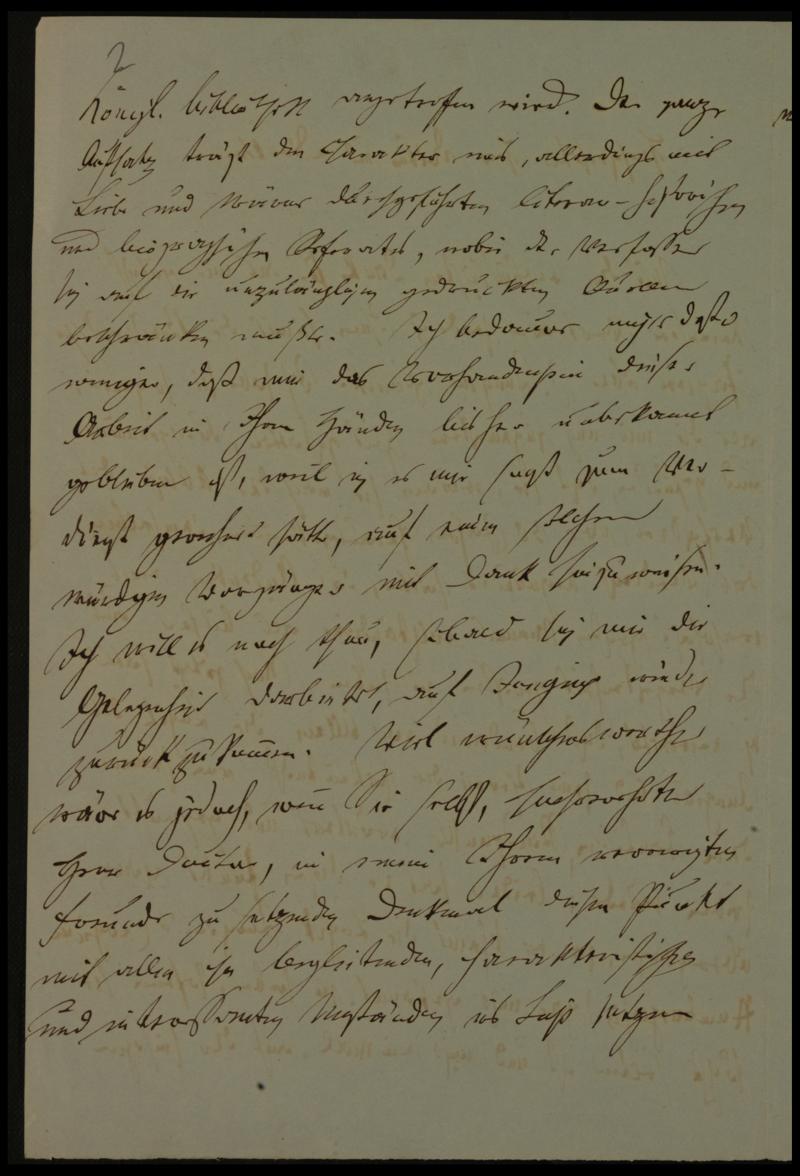 2
Königl. Bibliothek angetroffen wird. Der ganze
Aufsatz trägt den Charakter eines, allerdings mit
Liebe und Wärme durchgeführten literar-historischen
und biographischen Referates, wobei der Verfasser
sich auf die unzulänglichen gedruckten Quellen
beschränken mußte. Ich bedauere nichts desto
weniger, daß mir das Vorhandensein dieser
Arbeit in Ihren Händen bisher unbekannt
geblieben ist, weil ich es mir sonst zum Ver-
dienst gerechnet hätte, auf einen solchen
würdigen Vorgänger mit Dank hinzuweisen.
Ich will es noch thun, sobald sich mir die
Gelegenheit darbietet, auf wieder
zurück zu kommen. Viel wünschenswerther
wäre es jedoch, wenn Sie selbst, hochverehrter
Herr Doctor, in einem Ihrem verewigten
Freunde zu setzenden Denkmal diesen Punkt
mit allen ihn begleitenden, charakteristischen
und interessanten Umständen ins Licht setzen